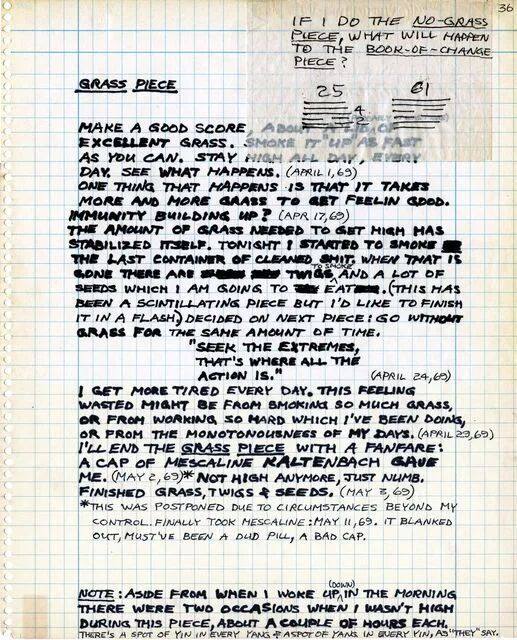 36
IF I DO THE NO-GRASS
PIECE, WHAT WILL HAPPEN
TO THE BOOK-OF-CHANGE
PIECE?
25 61
4
2
GRASS PIECE
MAKE A GOOD SCORE, ABOUT A LID OF
EXCELLENT GRASS. SMOKE IT UP AS FAST
AS YOU CAN. STAY HIGH ALL DAY, EVERY
DAY. SEE WHAT HAPPENS. (APRIL 1, 69)
ONE THING THAT HAPPENS IS THAT IT TAKES
MORE AND MORE GRASS TO GET FEELIN GOOD.
IMMUNITY BUILDING UP? (APR 17, 69)
THE AMOUNT OF GRASS NEEDED TO GET HIGH HAS
STABILIZED ITSELF. TONIGHT I STARTED TO SMOKE
THE LAST CONTAINER OF CLEANED SHIT. WHEN THAT IS
GONE THERE ARE TWIGS TO SMOKE, AND A LOT OF
SEEDS WHICH I AM GOING TO EAT. (THIS HAS
BEEN A SCINTILLATING PIECE BUT I'D LIKE TO FINISH
IT IN A FLASH) DECIDED ON NEXT PIECE: GO WITHOUT
GRASS FOR THE SAME AMOUNT OF TIME.
"SEEK THE EXTREMES,
THAT'S WHERE ALL THE
ACTION IS." (APRIL 24, 69)
I GET MORE TIRED EVERY DAY. THIS FEELING
WASTED MIGHT BE FROM SMOKING SO MUCH GRASS,
OR FROM WORKING SO HARD WHICH I'VE BEEN DOING,
OR FROM THE MONOTONOUSNESS OF MY DAYS. (APRIL 29, 69)
I'LL END THE GRASS PIECE WITH A FANFARE:
A CAP OF MESCALINE KALTENBACH GAVE
ME. (MAY 2, 69)* NOT HIGH ANYMORE, JUST NUMB.
FINISHED GRASS, TWIGS & SEEDS. (MAY 3, 69)
*THIS WAS POSTPONED DUE TO CIRCUMSTANCES BEYOND MY
CONTROL. FINALLY TOOK MESCALINE: MAY 11, 69. IT BLANKED
OUT, MUST'VE BEEN A DUD PILL, A BAD CAP.
NOTE: ASIDE FROM WHEN I WOKE UP (DOWN) IN THE MORNING
THERE WERE TWO OCCASIONS WHEN I WASN'T HIGH
DURING THIS PIECE, ABOUT A COUPLE OF HOURS EACH.
THERE'S A SPOT OF YIN IN EVERY YANG & A SPOT OF YANG IN EVERY YIN AS "THEY" SAY.